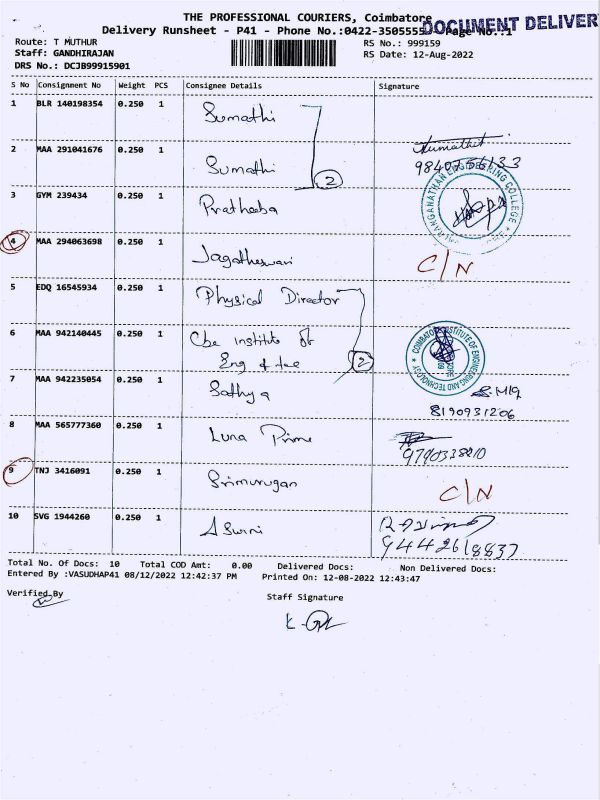 THE PROFESSIONAL COURIERS, Coimbatore
DOCUMENT DELIVER
Delivery Runsheet - P41 - Phone No.:0422-3505555 Page No.:1
Route: T MUTHUR
RS No.: 999159
Staff: GANDHIRAJAN
RS Date: 12-Aug-2022
DRS No.: DCJB99915901
S No Consignment No Weight PCS Consignee Details Signature
1 BLR 140198354 0.250 1 Sumathi
2 MAA 291041676 0.250 1 Sumathi 2
3 GYM 239434 0.250 1 Pratheeba
RANGANATHAN ENGINEERING COLLEGE
4 MAA 294063698 0.250 1 Jagatheswari C/N
5 EDQ 16545934 0.250 1 Physical Director
6 MAA 942140445 0.250 1 Cbe institute of
Eng & tec 2
COIMBATORE INSTITUTE OF ENGINEERING AND TECHNOLOGY
7 MAA 942235054 0.250 1 Sathya
8190931206
8 MAA 565777360 0.250 1 Luna Prime
9 TNJ 3416091 0.250 1 Srimurugan C/N
10 SVG 1944260 0.250 1 Aswini
9442618837
Total No. Of Docs: 10 Total COD Amt: 0.00 Delivered Docs: Non Delivered Docs:
Entered By :VASUDHAP41 08/12/2022 12:42:37 PM Printed On: 12-08-2022 12:43:47
Verified By
Staff Signature